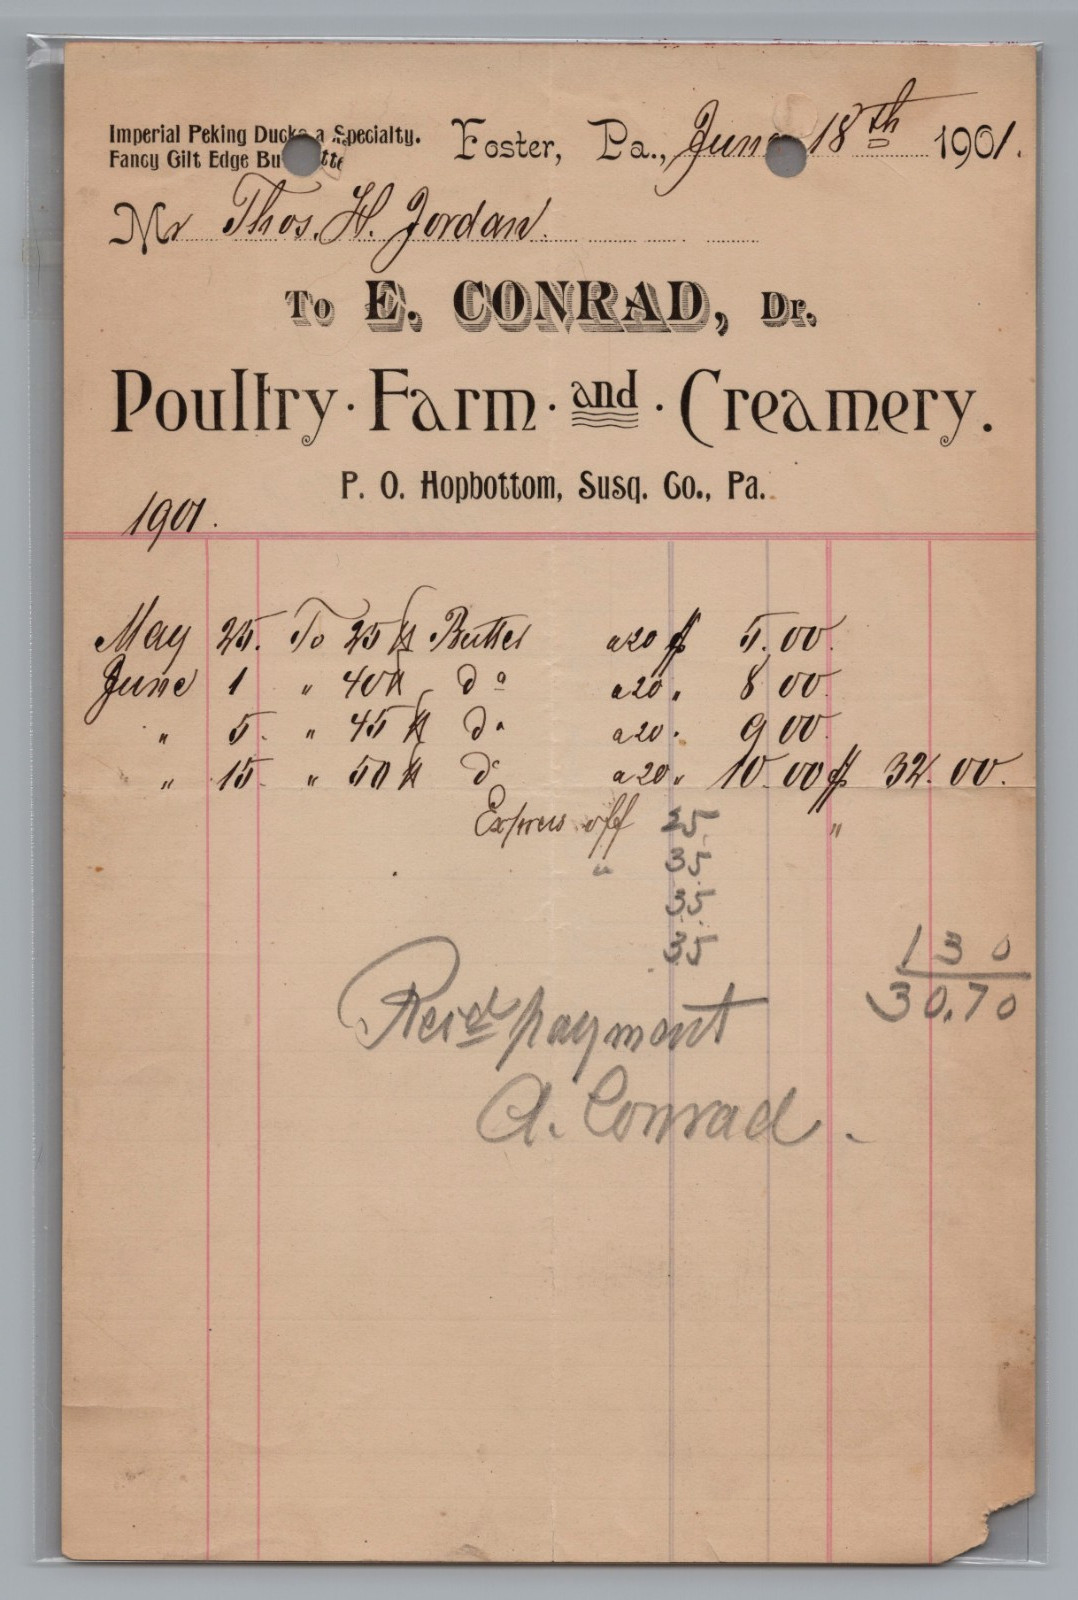 Imperial Peking Ducks a Specialty.
Fancy Gilt Edge Bu tte
Foster, Pa., June 18th 1901.
Mr Thos. H. Jordan.
To E. CONRAD, Dr.
Poultry · Farm · and · Creamery.
P. O. Hopbottom, Susq. Co., Pa.
1901.
May 25. To 25 lb Butter a 20 $ 5.00.
June 1 " 40 lb do a 20 " 8 00.
" 5. " 45 lb do a 20 " 9 00.
" 15. " 50 lb do a 20 " 10.00 $ 32.00.
Express off 25 "
" 35
35
35
1 3 0
30.70
Recd payment
A. Conrad.